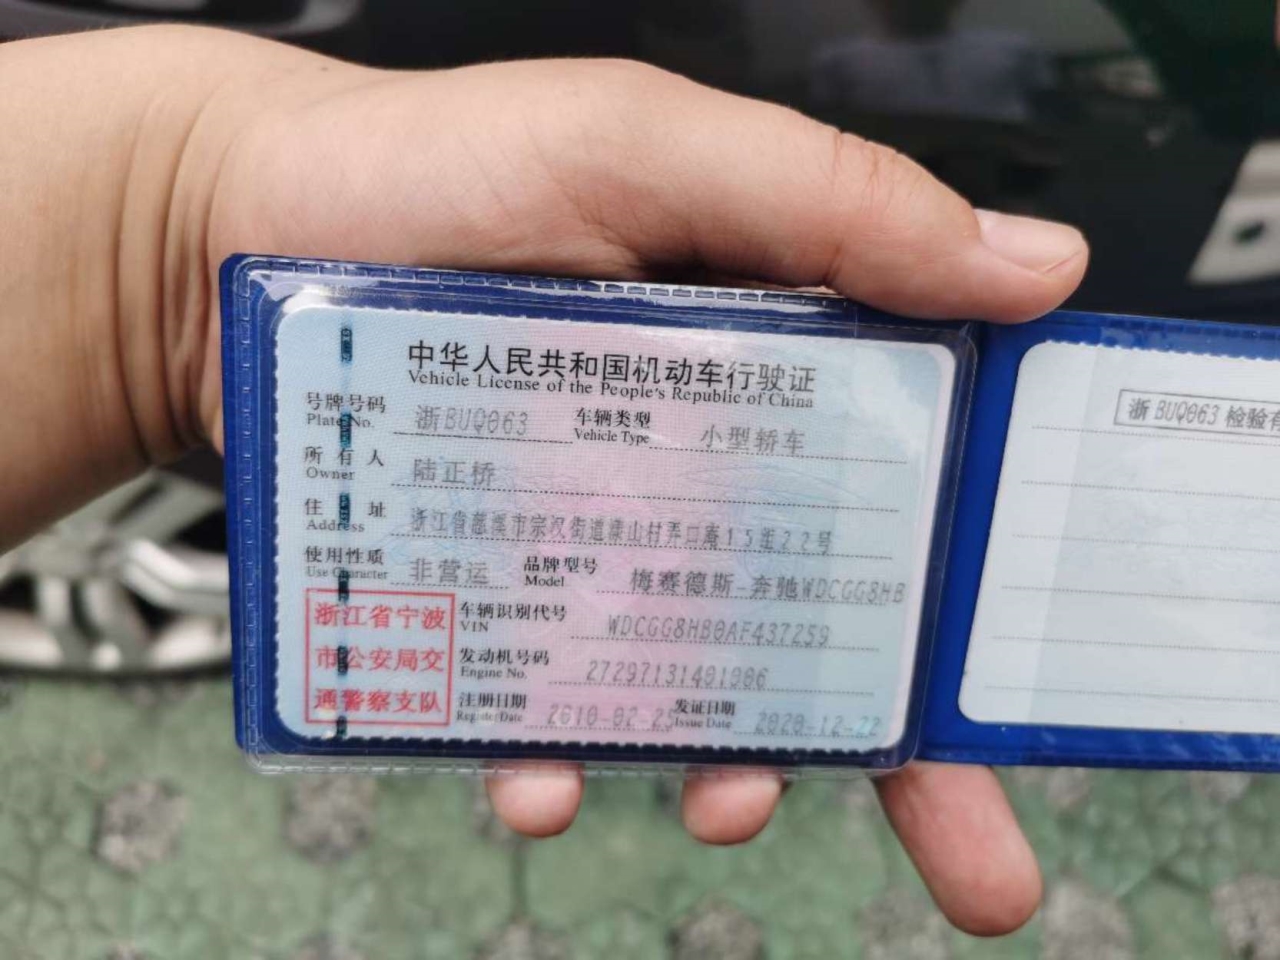 中华人民共和国机动车行驶证
Vehicle License of the People's Republic of China
号牌号码 浙BUQ063 车辆类型 小型轿车
Plate No. Vehicle Type
所有人 陆正桥
Owner
住址 浙江省慈溪市宗汉街道潮山村弄口庵15组22号
Address
使用性质 非营运 品牌型号 梅赛德斯-奔驰WDCGG8HB
Use Character Model
浙江省宁波
市公安局交
通警察支队
车辆识别代号 WDCGG8HB0AF437259
VIN
发动机号码 27297131401986
Engine No.
注册日期 2010-02-25 发证日期 2020-12-22
Register Date Issue Date
浙BUQ063 检验有